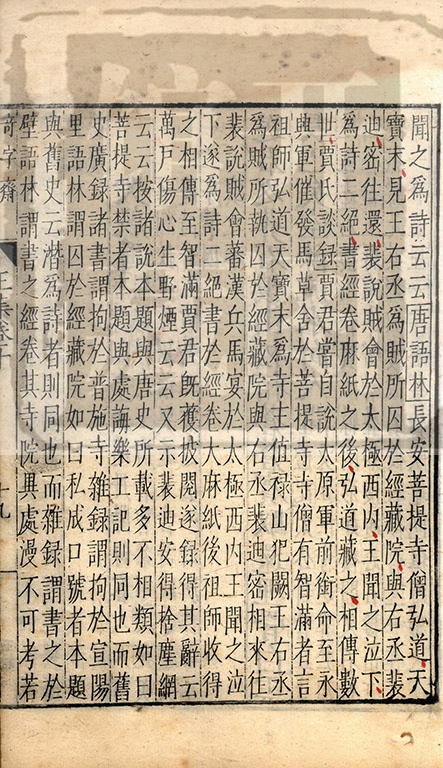 聞之為詩云云唐語林長安菩提寺僧弘道天
寶末見王右丞為賊所囚於經藏院與右丞裴
迪密往還裴說賊會於太極西內王聞之泣下
為詩二絕書經卷麻紙之後弘道藏之相傳數
世賈氏談録賈君嘗自說太原軍前銜命至永
興軍催發馬草舍於菩提寺寺僧有智滿者言
祖師弘道天寶末為寺主值禄山犯闕王右丞
為賊所執囚於經藏院與右丞裴迪密相來往
裴說賊會蕃漢兵馬宴於太極西內王聞之泣
下遂為詩二絕書於經卷大麻紙後祖師收得
之相傳至智滿賈君旣獲披閱遂録得其辭云
萬戸傷心生野煙云云又示裴迪安得捨塵網
云云按諸說本題與唐史所載多不相類如曰
菩提寺禁者本題與處誨樂工記則同也而舊
史廣録諸書謂拘於普施寺雜録謂拘於宣陽
里語林謂囚於經藏院如曰私成口號者本題
與舊史云潛為詩者則同也而雜録謂書之於
壁語林謂書之經卷其寺院異處漫不可考若
奇字齋